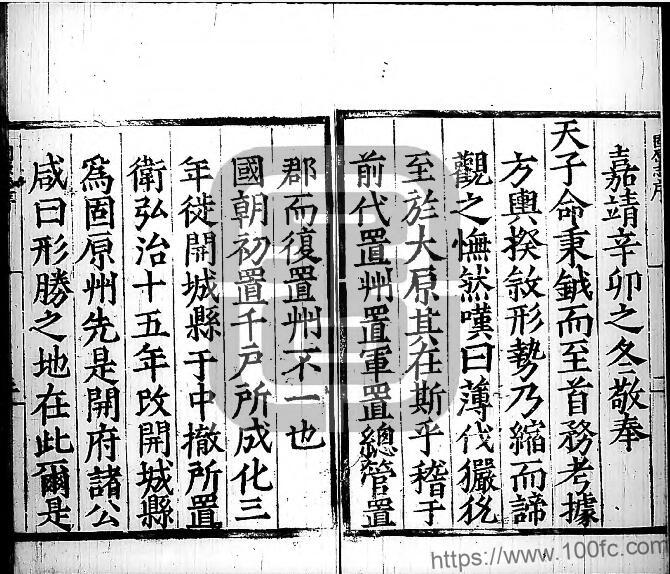 嘉靖辛卯之冬敬奉
天子命秉鉞而至首務考據
方輿揆敘形勢乃縮而諦
觀之憮然嘆曰薄伐玁狁
至於大原其在斯乎稽于
前代置州置軍置總管置
郡而復置州不一也
國朝初置千戶所成化三
年徙開城縣于中撤所置
衛弘治十五年改開城縣
爲固原州先是開府諸公
咸曰形勝之地在此爾是
https://www.100fc.com